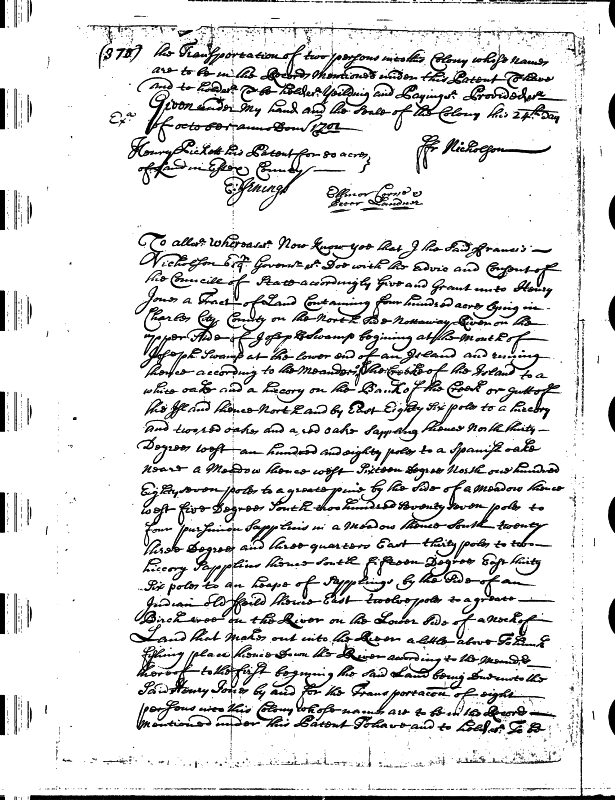 (378) the Transportation of two persons into this Colony whose names
are to be in the Records Mentioned under this Patent To have
and to hold &c To be held &c Yeilding and Paying &c Provided &c
Given under My hand and the Seale of the Colony this 24th Day
Ex
of october anno Dom 1701
Henry Pickett his Patent for 80 acres
Ffr Nicholson
of Land in Essex County
E: Jenings
Ellinor
Peter
To all &c whereas &c Now Know yee that I the said Francis
Nicholson Esqr Governr &c Doe with the advice and Consent of
the Councill of State accordingly Give and Grant unto Henry
Jones a Tract of Land Containing four hundred acres lying in
Charles City County on the North Side Nottaway River on the
upper Side of Joseph Swamp begining at the Mouth of
Joseph Swamp at the lower end of an Island and runing
thence according to the Meanders of the Creeke of the Island to a
white oake and a hiccory on the Bank of the Creek or gutt of
the Island thence North and by East Eighty Six pole to a hiccory
and two red oakes and a red oake Sappling thence North thirty
Degrees west an hundred and eighty poles to a Spanish oake
neare a Meadow thence west Sixteen Degrees North one hundred
Eighty seven poles to a greate pine by the Side of a Meadow thence
west five Degrees South two hundred Seventy Seven poles to
four pursimon Sapplins in a Meadow thence South twenty
three Degrees and three quarters East thirty poles to two
hiccory Sapplins thence South fifteen Degrees East thirty
Six poles to an heape of Sapplings by the Side of an
Indian old feild thence East twelve poles to a greate
Birch tree on the River on the Lower Side of a Neck of
Land that makes out into the River a little above
fishing place thence down the River according to the Meanders
thereof to the first begining the said Land being Due unto the
Said Henry Jones by and for the Transportacon of eight
persons into this Colony whose names are to be in the Records
mentioned under this Patent To have and to hold &c To be